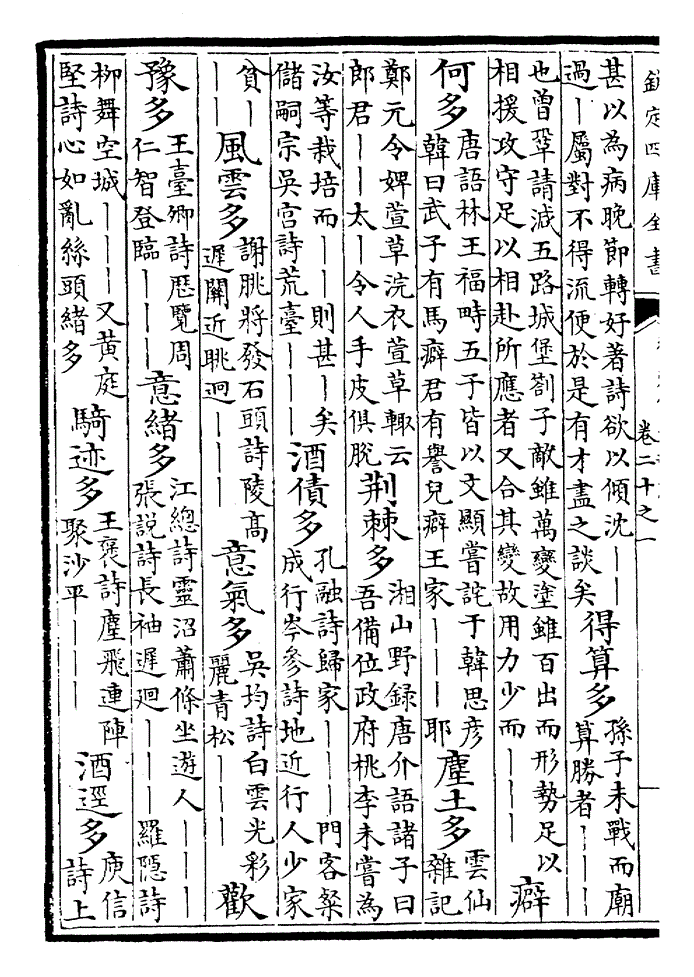 欽定四庫全書
卷二十之一
甚以為病晚節轉好著詩欲以傾沈——
過—屬對不得流便於是有才盡之談矣
得算多
孫子未戰而廟
算勝者———
也曾鞏請減五路城堡劄子敵雖萬變塗雖百出而形勢足以
相援攻守足以相赴所應者又合其變故用力少而———
癖
何多
唐語林王福畤五子皆以文顯嘗詫于韓思彦
韓曰武子有馬癖君有譽兒癖王家———耶
塵土多
雲仙
雜記
鄭元令婢萱草浣衣萱草輙云
郎君——太—令人手皮俱脫
荆棘多
湘山野録唐介語諸子曰
吾備位政府桃李未嘗為
汝等栽培而——則甚—矣
儲嗣宗吳宫詩荒臺———
酒債多
孔融詩歸家———門客粲
成行岑參詩地近行人少家
貧———
風雲多
謝朓將發石頭詩陵髙
遲闕近眺迥———
意氣多
吳均詩白雲光彩
麗青松———
歡
豫多
王臺卿詩歴覽周
仁智登臨———
意緒多
江總詩靈沼蕭條坐遊人———
張説詩長袖遲迴———羅隱詩
柳舞空城———又黄庭
堅詩心如亂絲頭緒多
騎迹多
王褒詩塵飛連陣
聚沙平———
酒逕多
庾信
詩上